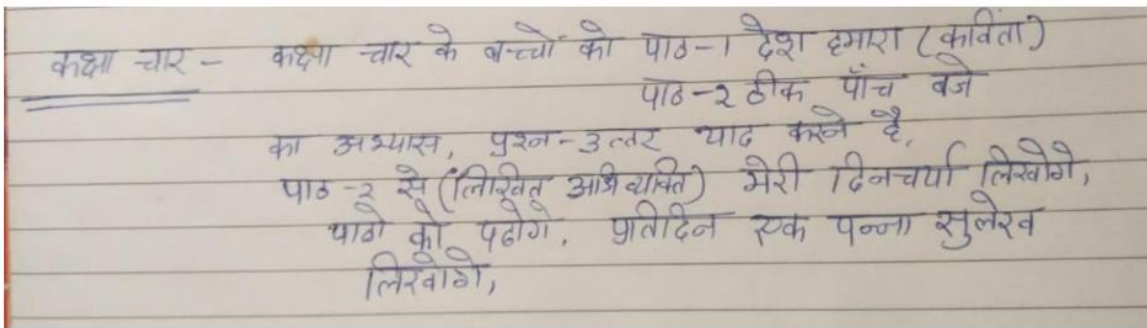 कक्षा चार - कक्षा चार के बच्चों को पाठ-1 देश हमारा (कविता)
पाठ-२ ठीक पाँच बजे
का अभ्यास, प्रश्न-उत्तर याद करने है,
पाठ-२ से (लिखित अभिव्यक्ति) मेरी दिनचर्या लिखोगे,
पाठो को पढोगे, प्रतिदिन एक पन्ना सुलेख
लिखोगे,